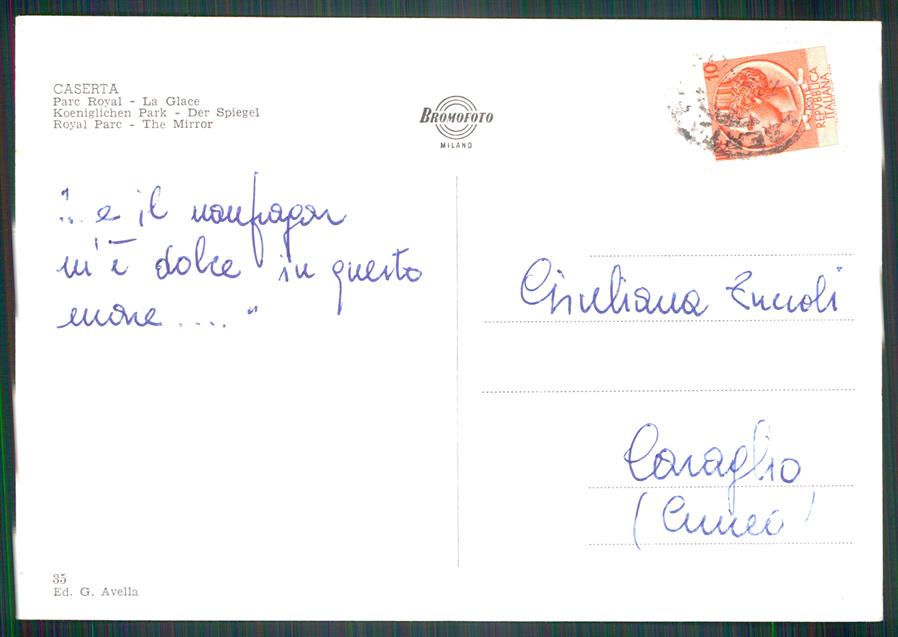 CASERTA
Parc Royal - La Glace
Koeniglichen Park - Der Spiegel
Royal Parc - The Mirror
BROMOFOTO
MILANO
10
POSTE
REPVBBLICA
ITALIANA
"... e il naufragar
m'è dolce in questo
mare .... "
Giuliana
Caraglio
(Cuneo)
35
Ed. G. Avella